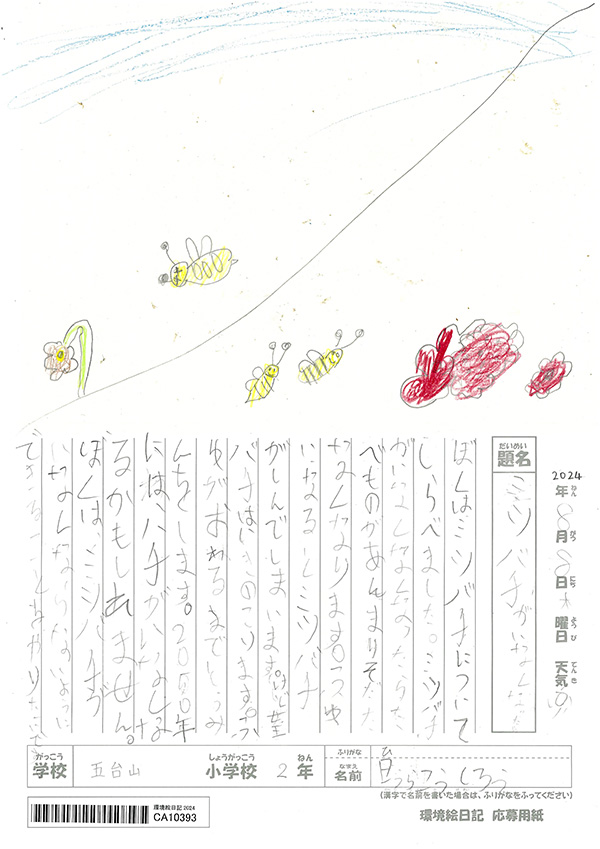 2024年8月8日木曜日 天気
ねん がつ にち ようび てんき
だいめい
題名 ミツバチがいなくなった
ぼくはミツバチについて
しらべました。ミツバチ
がいなくなったらた
べものがあんまりそだた
なくなります。ふゆ
になるとミツバチ
がしんでしまいます。けど女王
バチはいきのこります。ふ
ゆがおわるまで
んをします。2050年
にはハチがいなくな
るかもしれません。
ぼくは、ミツバチが
いなくならないように
できることをやりたいです
がっこう しょうがっこう ねん
学校 五台山 小学校 2年
ふりがな ひ
なまえ
名前
(漢字で名前を書いた場合は、ふりがなをふってください)
環境絵日記 2024
CA10393
環境絵日記 応募用紙